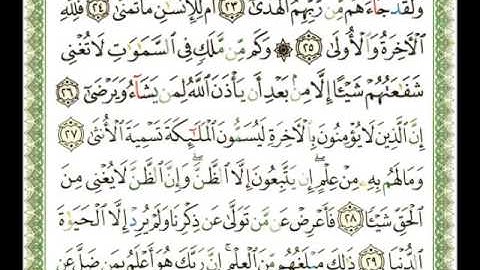 وَلَقَدْ جَآءَهُم مِّن رَّبِّهِمُ ٱلْهُدَىٰٓ ٢٣ أَمْ لِلْإِنسَٰنِ مَا تَمَنَّىٰ ٢٤ فَلِلَّهِ
ٱلْءَاخِرَةُ وَٱلْأُولَىٰ ٢٥ ۞ وَكَم مِّن مَّلَكٍ فِى ٱلسَّمَٰوَٰتِ لَا تُغْنِى
شَفَٰعَتُهُمْ شَيْـًٔا إِلَّا مِنۢ بَعْدِ أَن يَأْذَنَ ٱللَّهُ لِمَن يَشَآءُ وَيَرْضَىٰٓ ٢٦
إِنَّ ٱلَّذِينَ لَا يُؤْمِنُونَ بِٱلْءَاخِرَةِ لَيُسَمُّونَ ٱلْمَلَٰٓئِكَةَ تَسْمِيَةَ ٱلْأُنثَىٰ ٢٧
وَمَا لَهُم بِهِۦ مِنْ عِلْمٍ ۖ إِن يَتَّبِعُونَ إِلَّا ٱلظَّنَّ ۖ وَإِنَّ ٱلظَّنَّ لَا يُغْنِى مِنَ
ٱلْحَقِّ شَيْـًٔا ٢٨ فَأَعْرِضْ عَن مَّن تَوَلَّىٰ عَن ذِكْرِنَا وَلَمْ يُرِدْ إِلَّا ٱلْحَيَوٰةَ
ٱلدُّنْيَا ٢٩ ذَٰلِكَ مَبْلَغُهُم مِّنَ ٱلْعِلْمِ ۚ إِنَّ رَبَّكَ هُوَ أَعْلَمُ بِمَن ضَلَّ عَن